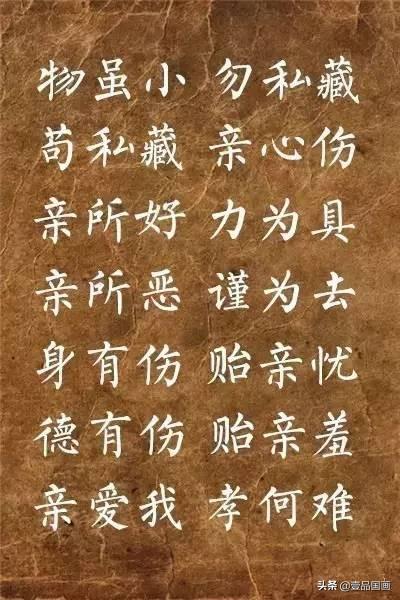 物虽小 勿私藏
苟私藏 亲心伤
亲所好 力为具
亲所恶 谨为去
身有伤 贻亲忧
德有伤 贻亲羞
亲爱我 孝何难
头条 @壹品国画